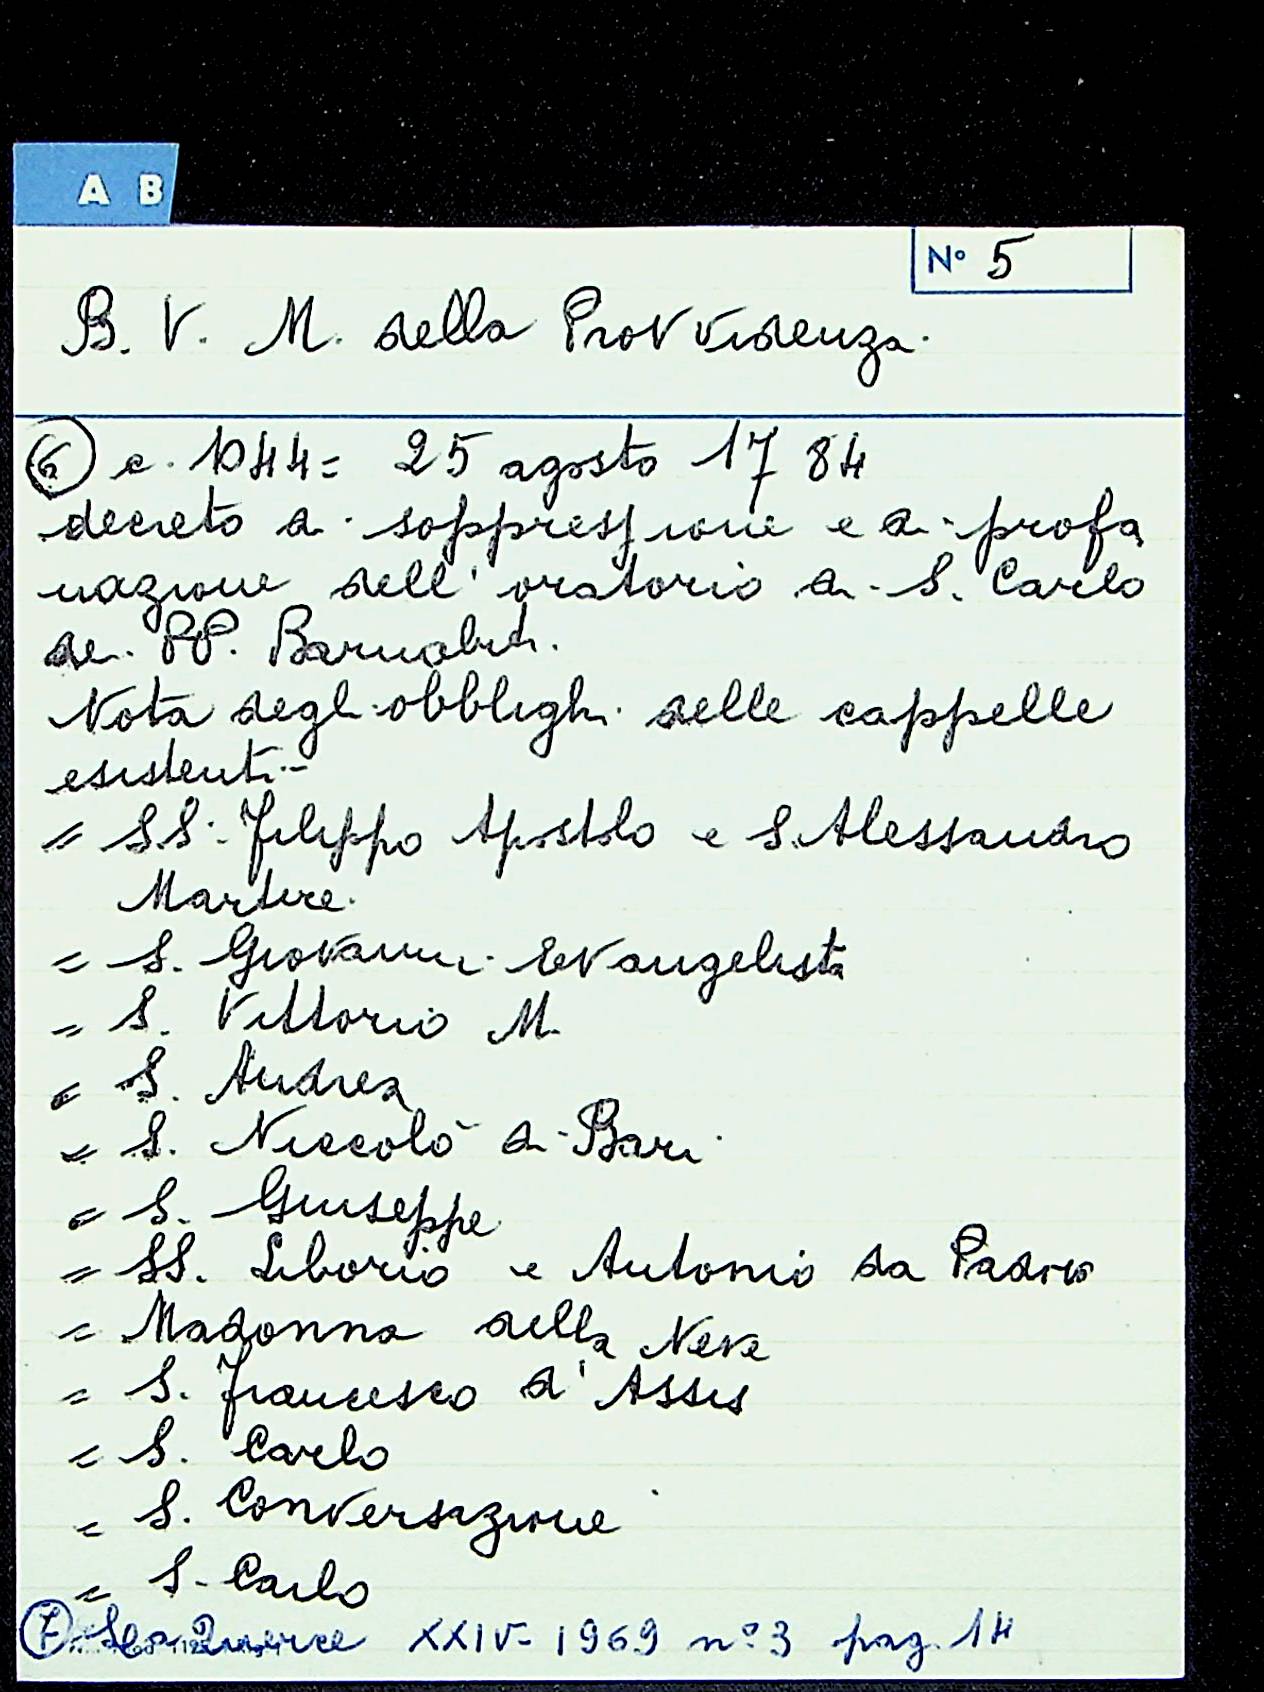 A B
N° 5
B. V. M. della Provvidenza.
6 c. 1044= 25 agosto 1784
decreto di soppressione e di profa
nazione dell' oratorio di S. Carlo
dei PP. Barnabiti.
Nota degli obblighi delle cappelle
esistenti-
= SS. Filippo Apostolo e S. Alessandro
Martire.
= S. Giovanni Evangelista
= S. Vittorio M.
= S. Andrea
= S. Niccolò di Bari
= S. Giuseppe
= SS. Liborio e Antonio da Padova
= Madonna della Neve
= S. Francesco d'Assisi
= S. Carlo
= S. Conversazione
= S. Carlo
7 La Querce XXIV- 1969 n° 3 pag. 14